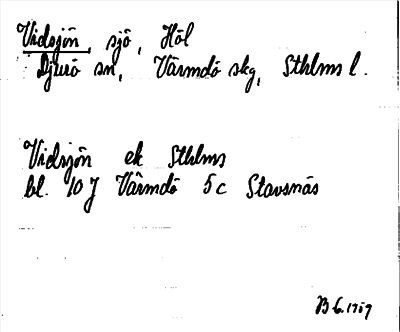 Vidsjön, sjö, Höl
Djurö sn, Värmdö skg, Sthlms l.
Vidsjön ek Sthlms
bl. 10 J Värmdö 5c Stavsnäs
B G. 1959